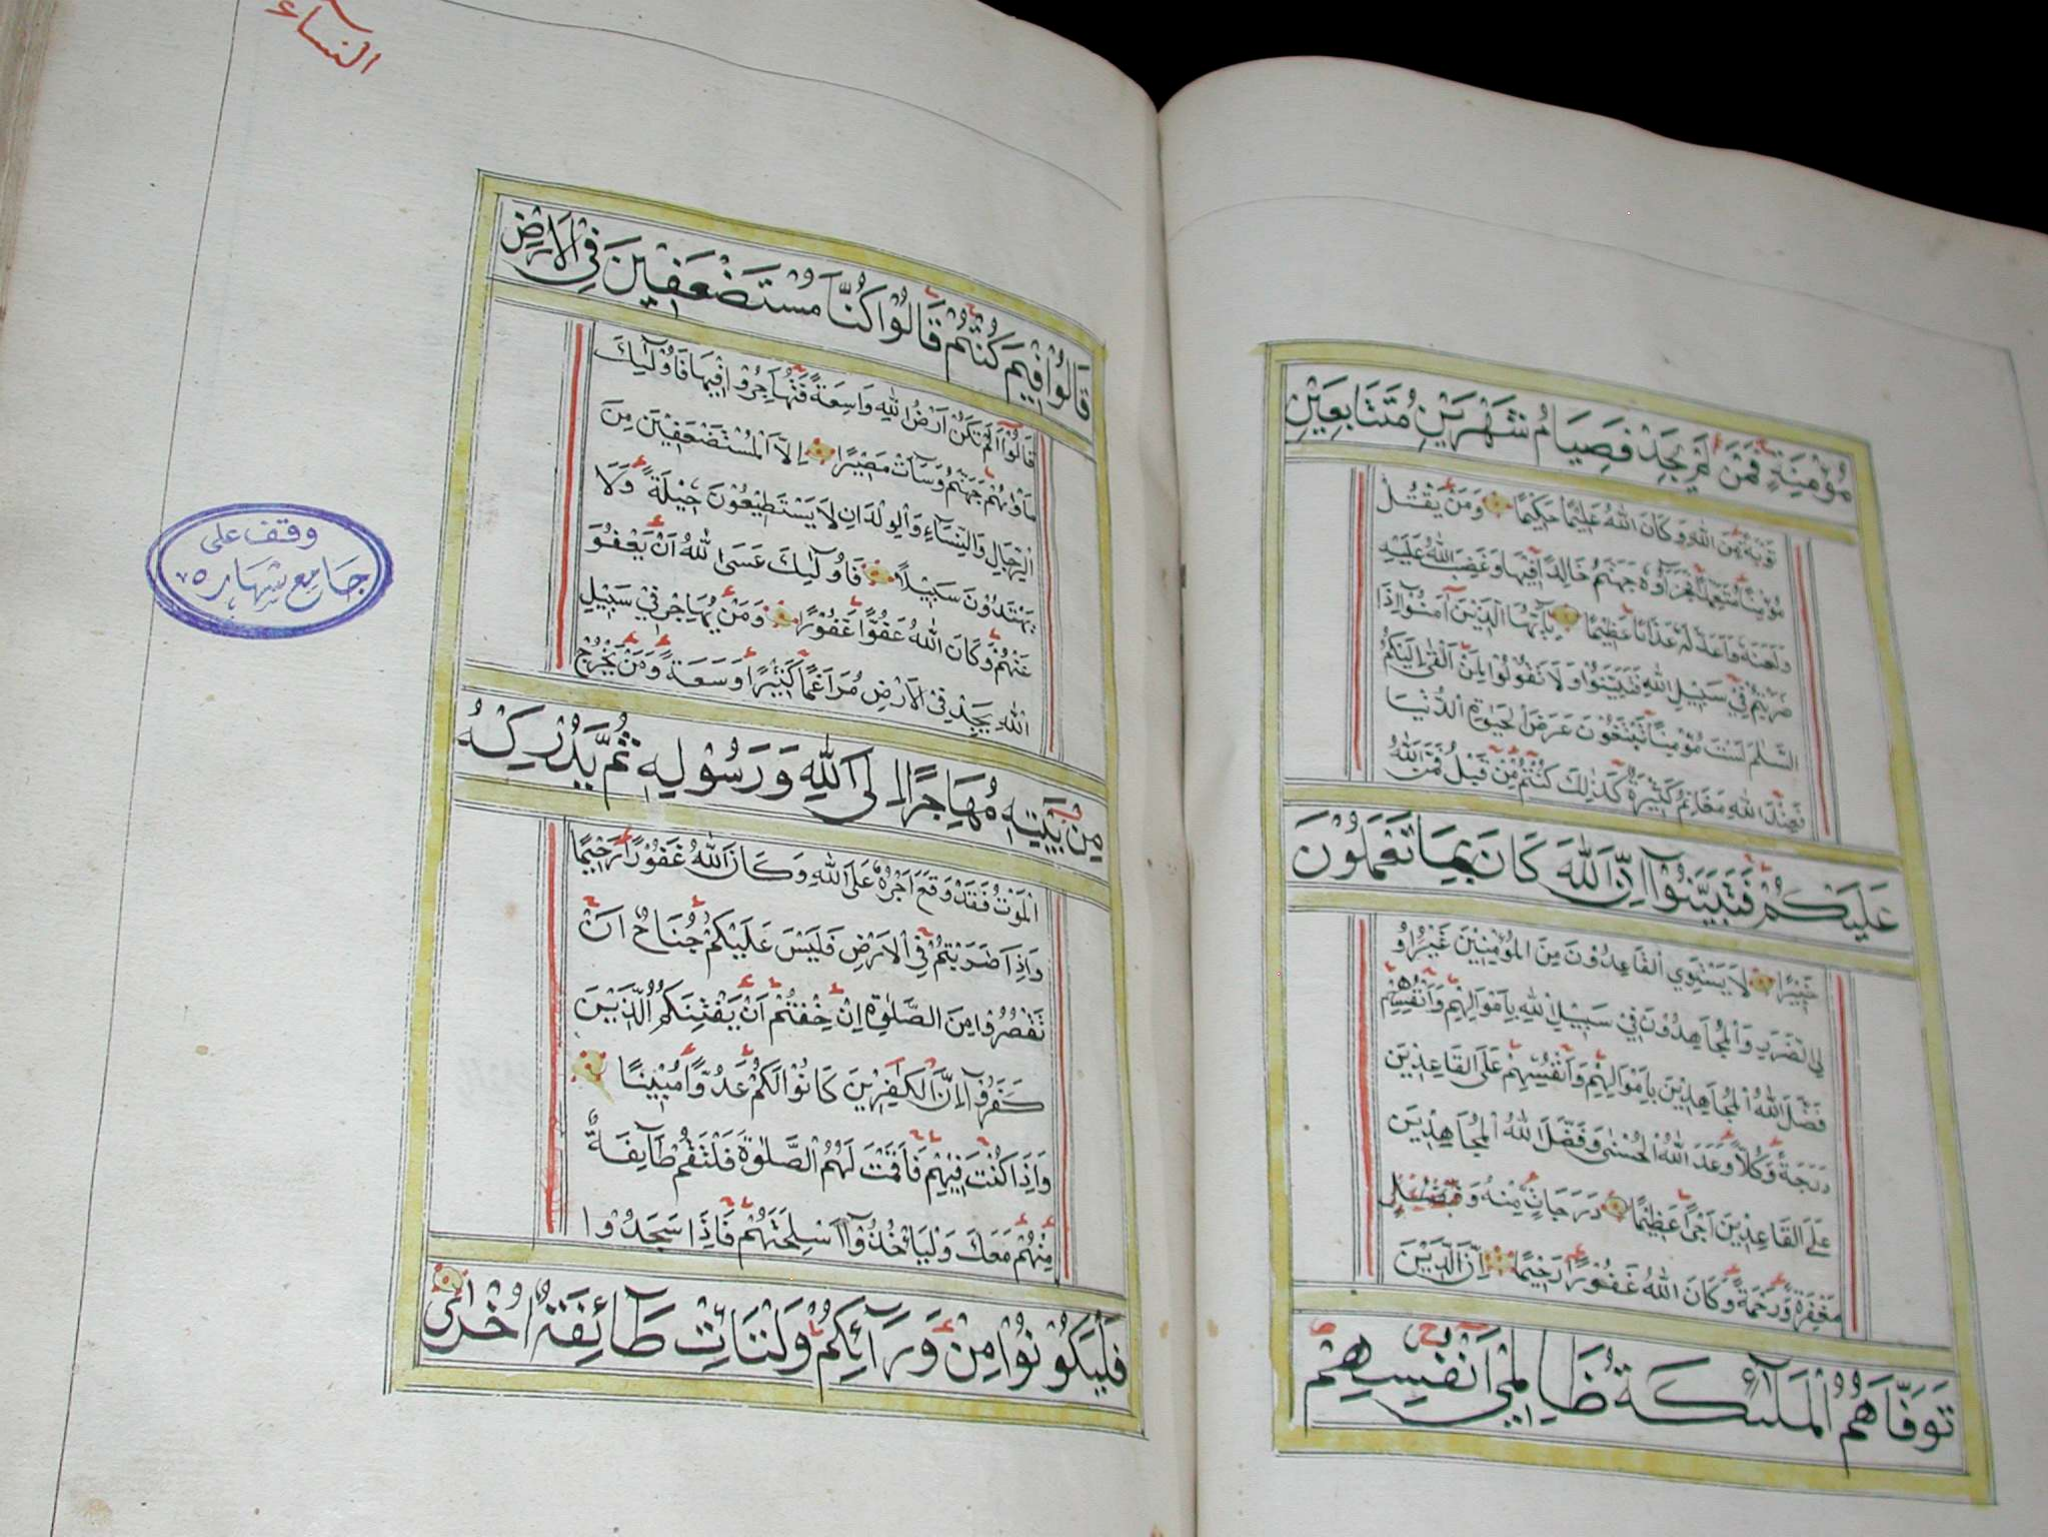 مُؤْمِنَةٍ فَمَنْ لَمْ يَجِدْ فَصِيَامُ شَهْرَيْنِ مُتَتَابِعَيْنِ
تَوْبَةً مِنَ اللهِ وَكَانَ اللهُ عَلِيْمًا حَكِيْمًا وَمَنْ يَقْتُلْ
مُؤْمِنًا مُتَعَمِّدًا فَجَزَآؤُهُ جَهَنَّمُ خَالِدًا فِيْهَا وَغَضِبَ اللهُ عَلَيْهِ
وَلَعَنَهُ وَاَعَدَّ لَهُ عَذَابًا عَظِيْمًا يٰاَيُّهَا الَّذِيْنَ آمَنُوْا اِذَا
ضَرَبْتُمْ فِيْ سَبِيْلِ اللهِ فَتَبَيَّنُوْا وَلَا تَقُوْلُوْا لِمَنْ اَلْقٰى اِلَيْكُمُ
السَّلٰمَ لَسْتَ مُؤْمِنًا تَبْتَغُوْنَ عَرَضَ الْحَيٰوةِ الدُّنْيَا
فَعِنْدَ اللهِ مَغَانِمُ كَثِيْرَةٌ كَذٰلِكَ كُنْتُمْ مِنْ قَبْلُ فَمَنَّ اللهُ
عَلَيْكُمْ فَتَبَيَّنُوْآ اِنَّ اللهَ كَانَ بِمَا تَعْمَلُوْنَ
خَبِيْرًا لَا يَسْتَوِي الْقَاعِدُوْنَ مِنَ الْمُؤْمِنِيْنَ غَيْرُ اُو
لِي الضَّرَرِ وَالْمُجَاهِدُوْنَ فِيْ سَبِيْلِ اللهِ بِاَمْوَالِهِمْ وَاَنْفُسِهِمْ
فَضَّلَ اللهُ الْمُجَاهِدِيْنَ بِاَمْوَالِهِمْ وَاَنْفُسِهِمْ عَلَى الْقَاعِدِيْنَ
دَرَجَةً وَكُلًّا وَعَدَ اللهُ الْحُسْنٰى وَفَضَّلَ اللهُ الْمُجَاهِدِيْنَ
عَلَى الْقَاعِدِيْنَ اَجْرًا عَظِيْمًا دَرَجَاتٍ مِنْهُ وَ
مَغْفِرَةً وَرَحْمَةً وَكَانَ اللهُ غَفُوْرًا رَحِيْمًا اِنَّ الَّذِيْنَ
تَوَفَّاهُمُ الْمَلٰٓئِكَةُ ظَالِمِيْ اَنْفُسِهِمْ
النساء
قَالُوْا فِيْمَ كُنْتُمْ قَالُوْا كُنَّا مُسْتَضْعَفِيْنَ فِي الْاَرْضِ
قَالُوْآ اَلَمْ تَكُنْ اَرْضُ اللهِ وَاسِعَةً فَتُهَاجِرُوْا فِيْهَا فَاُولٰٓئِكَ
مَأْوٰىهُمْ جَهَنَّمُ وَسَآءَتْ مَصِيْرًا اِلَّا الْمُسْتَضْعَفِيْنَ مِنَ
الرِّجَالِ وَالنِّسَآءِ وَالْوِلْدَانِ لَا يَسْتَطِيْعُوْنَ حِيْلَةً وَلَا
يَهْتَدُوْنَ سَبِيْلًا فَاُولٰٓئِكَ عَسَى اللهُ اَنْ يَعْفُوَ
عَنْهُمْ وَكَانَ اللهُ عَفُوًّا غَفُوْرًا وَمَنْ يُهَاجِرْ فِيْ سَبِيْلِ
اللهِ يَجِدْ فِي الْاَرْضِ مُرَاغَمًا كَثِيْرًا وَسَعَةً وَمَنْ يَخْرُجْ
مِنْ بَيْتِهِ مُهَاجِرًا اِلَى اللهِ وَرَسُوْلِهِ ثُمَّ يُدْرِكْهُ
الْمَوْتُ فَقَدْ وَقَعَ اَجْرُهُ عَلَى اللهِ وَكَانَ اللهُ غَفُوْرًا رَحِيْمًا
وَاِذَا ضَرَبْتُمْ فِي الْاَرْضِ فَلَيْسَ عَلَيْكُمْ جُنَاحٌ اَنْ
تَقْصُرُوْا مِنَ الصَّلٰوةِ اِنْ خِفْتُمْ اَنْ يَفْتِنَكُمُ الَّذِيْنَ
كَفَرُوْآ اِنَّ الْكٰفِرِيْنَ كَانُوْا لَكُمْ عَدُوًّا مُبِيْنًا
وَاِذَا كُنْتَ فِيْهِمْ فَاَقَمْتَ لَهُمُ الصَّلٰوةَ فَلْتَقُمْ طَآئِفَةٌ
مِنْهُمْ مَعَكَ وَلْيَأْخُذُوْآ اَسْلِحَتَهُمْ فَاِذَا سَجَدُوْا
فَلْيَكُوْنُوْا مِنْ وَرَآئِكُمْ وَلْتَأْتِ طَآئِفَةٌ اُخْرٰى
وقف على
جامع شهاره